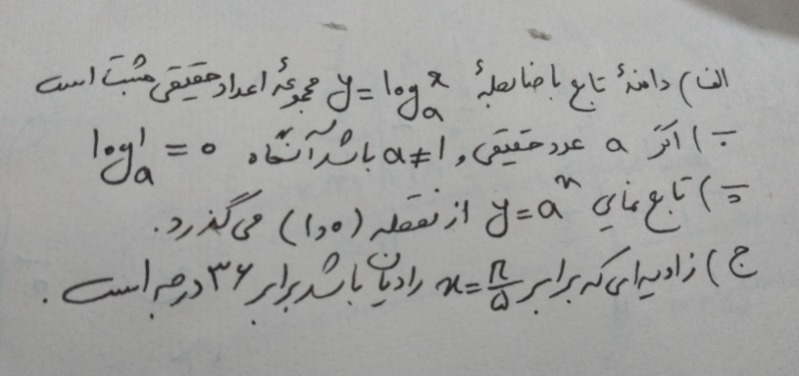 الف) دامنهٔ تابع با ضابطهٔ y = log_a^x مجموعهٔ اعداد حقیقی مثبت است
ب) اگر a عدد حقیقی و a ≠ 1 باشد آنگاه log_a^1 = 0
ت) تابع نمایی y = a^x از نقطه (1 و 0) می گذرد.
ج) زاویه ای که برابر x = π/۵ رادیان باشد برابر ۳۶ درجه است.